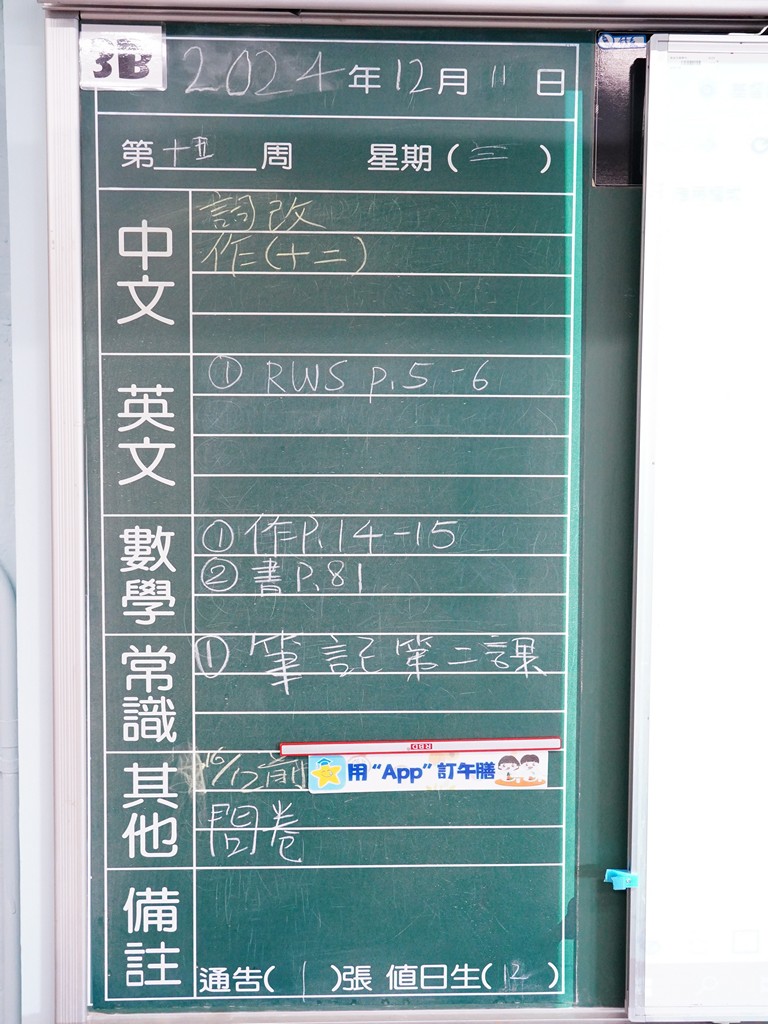 3B
2024年12月11日
第十五周 星期(三)
中文
詞改
作(十二)
英文
① RWS p.5-6
數學
① 作P.14-15
② 書P.81
常識
① 筆記第二課
其他
16/12前
用“App”訂午膳
問卷
備註
通告(1)張 值日生(12)